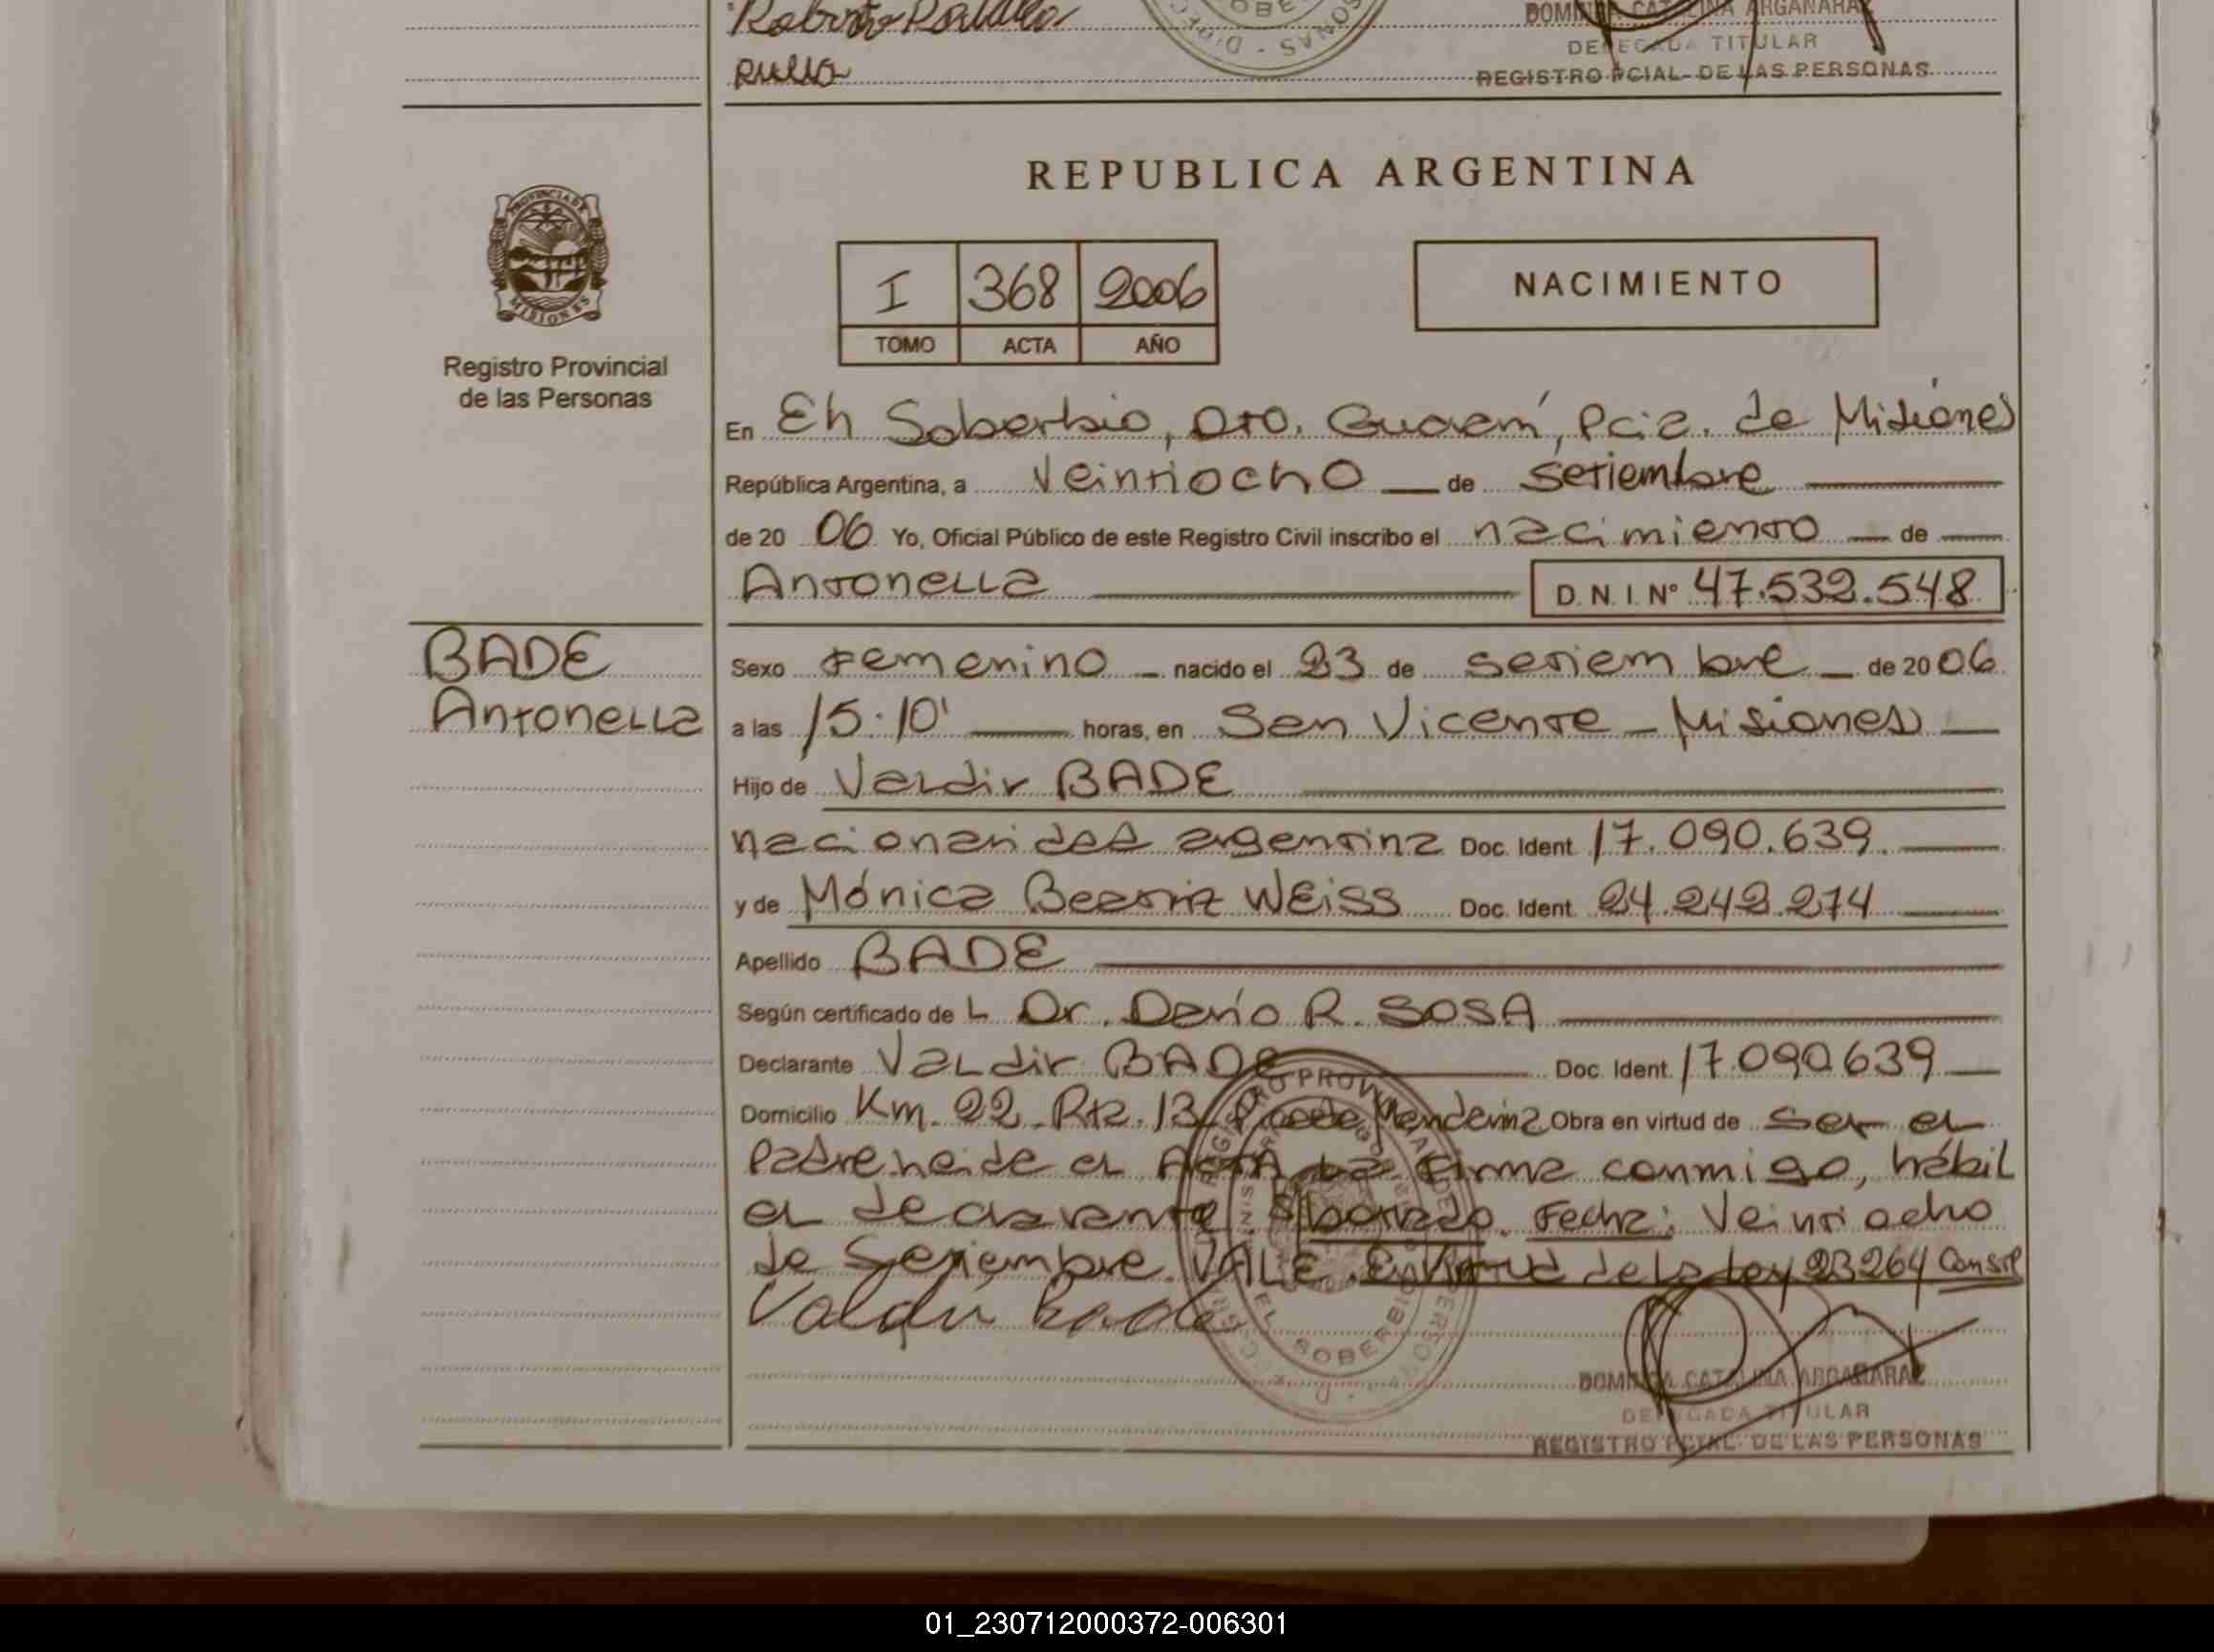 Roberto
DOMINGA CATALINA ARGAÑARAZ
DELEGADA TITULAR
REGISTRO PCIAL DE LAS PERSONAS
REPUBLICA ARGENTINA
PROVINCIA DE MISIONES
Registro Provincial
de las Personas
I 368 2006
TOMO ACTA AÑO
NACIMIENTO
En El Soberbio, Dto. Guaraní, Pcia. de Misiones
República Argentina, a Veintiocho de Setiembre
de 20 06 Yo, Oficial Público de este Registro Civil inscribo el nacimiento de
Antonella D.N.I. Nº 47.532.548
BADE
Antonella
Sexo femenino nacido el 23 de setiembre de 20 06
a las 15:10' horas, en San Vicente - Misiones
Hijo de Valdir BADE
nacionalidad argentina Doc. Ident. 17.090.639
y de Mónica Beatriz WEISS Doc. Ident. 24.242.274
Apellido BADE
Según certificado de L Dr. Darío R. SOSA
Declarante Valdir BADE Doc. Ident. 17.090.639
Domicilio Km. 22 Rta. 13 Obra en virtud de ser el
Padre leída el ACTA la firma conmigo, hábil
el declarante S/borrado. Fecha: Veintiocho
de Setiembre. VALE. En virtud de la Ley 23264
Valdir Bade
EL SOBERBIO
DOMINGA CATALINA ARGAÑARAZ
DELEGADA TITULAR
REGISTRO PCIAL DE LAS PERSONAS
01_230712000372-006301